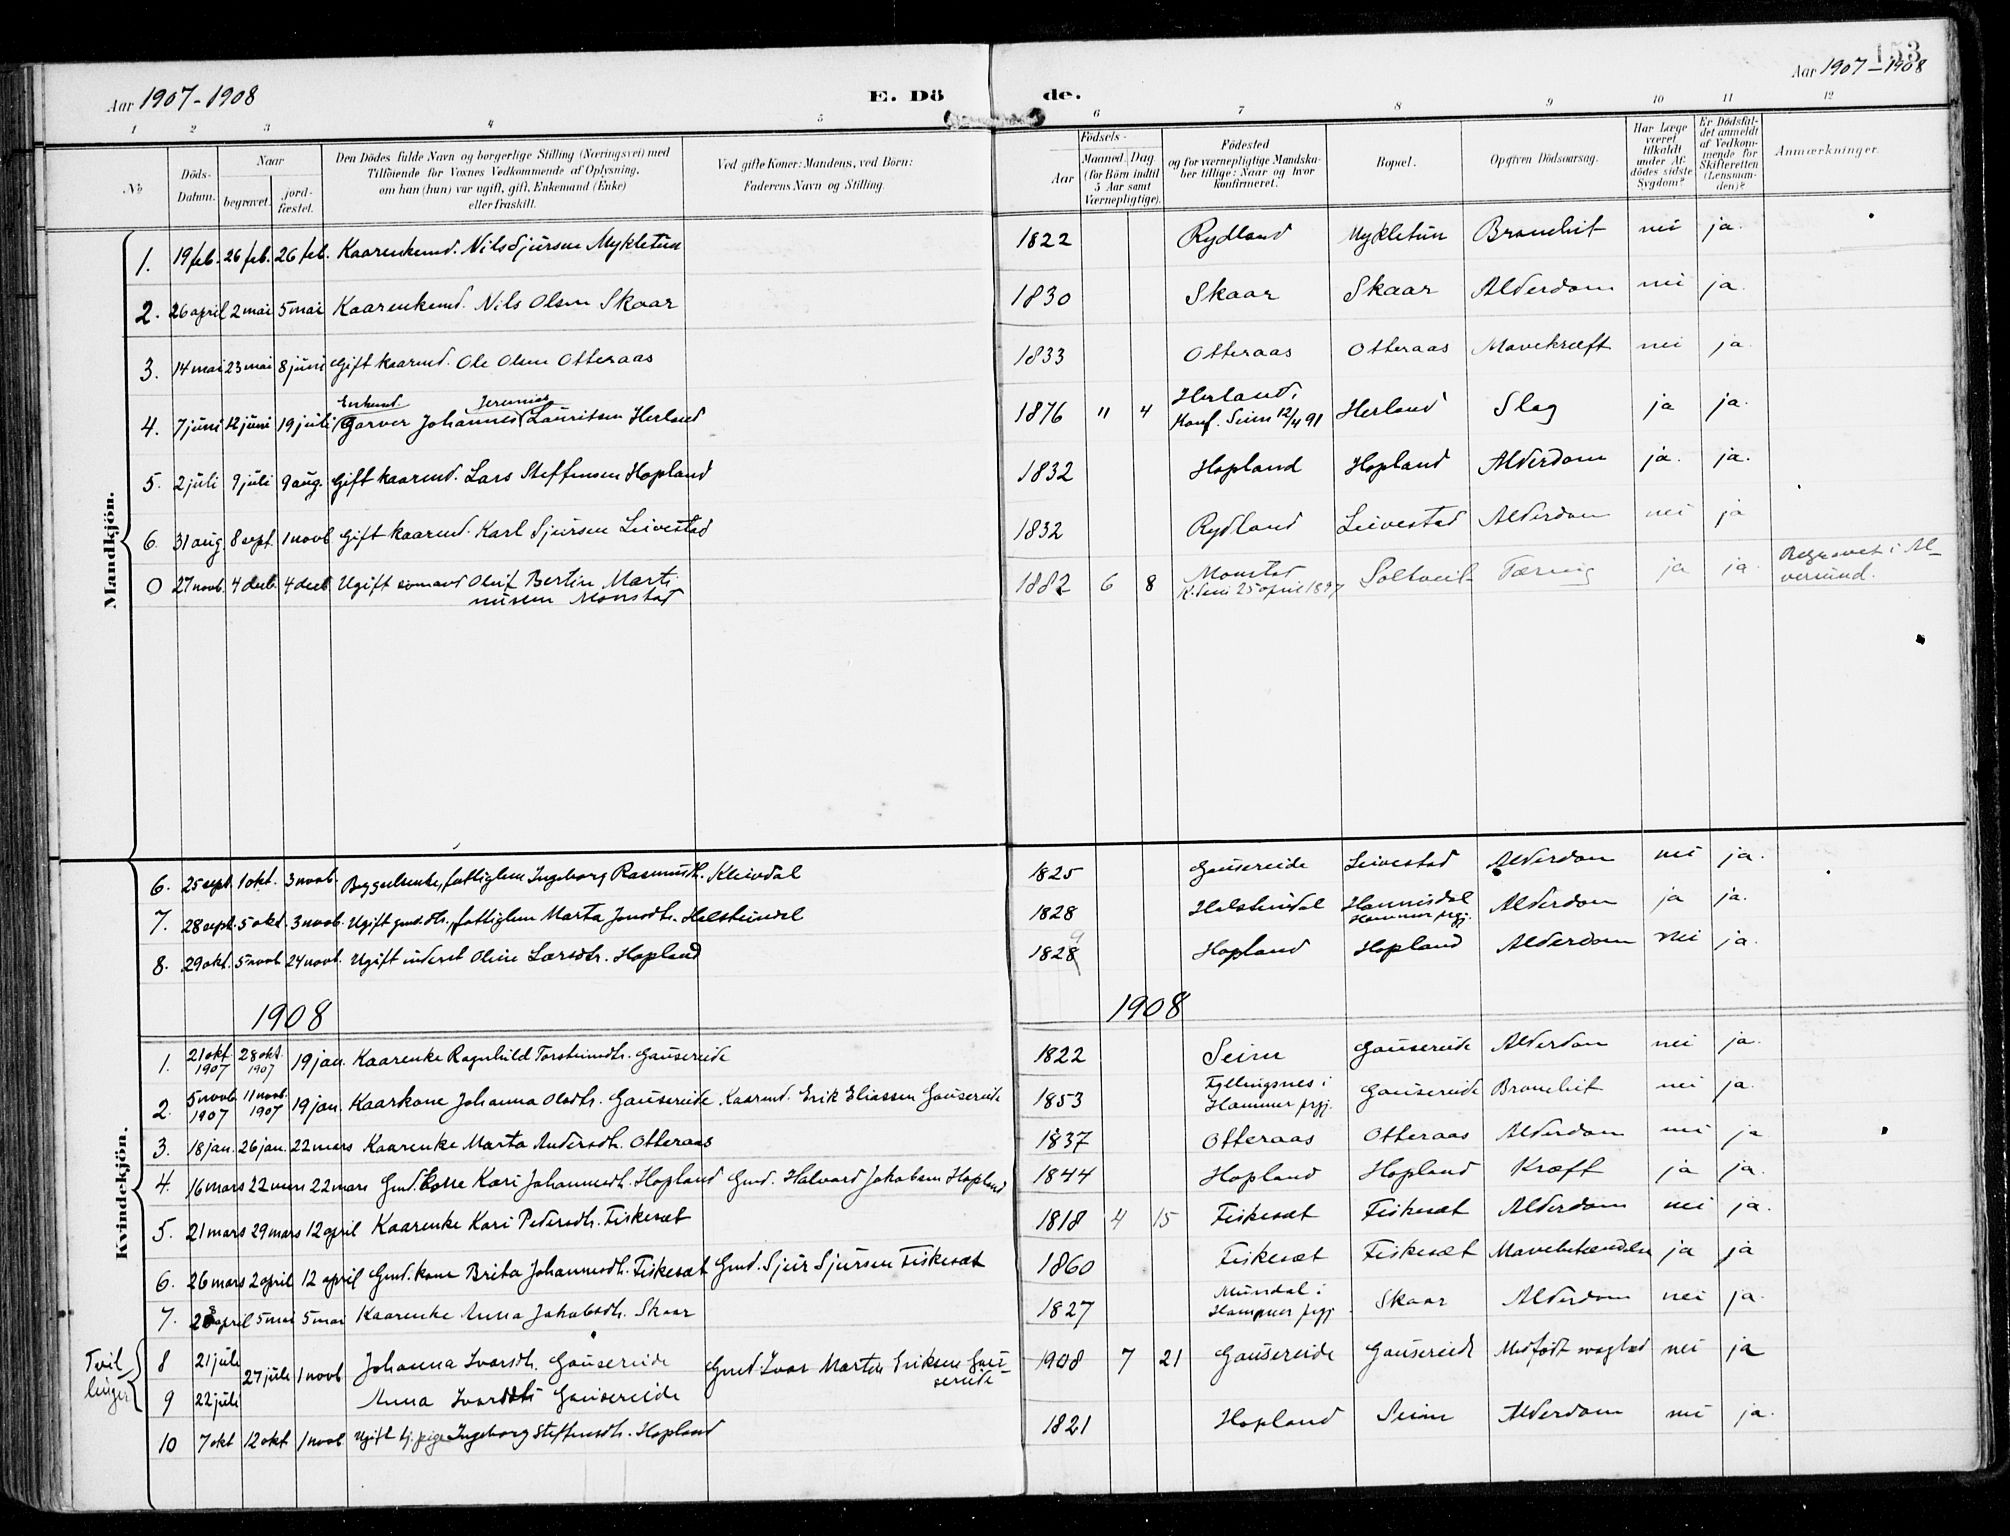 153
Aar 1907-1908 E. Dö de. Aar 1907-1908
1 2 3 4 5 6 7 8 9 10 11 12
No Döds-Datum. Naar begravet. jord-fæstet. Den Dödes fulde Navn og borgerlige Stilling (Næringsvei) med Tilföiende for Voxnes Vedkommende af Oplysning, om han (hun) var ugift, gift, Enkemand (Enke) eller fraskilt. Ved gifte Koner: Mandens, ved Börn: Faderens Navn og Stilling. Födsels- Aar Maaned Dag (for Börn indtil 5 Aar samt Værnepligtige). Födested og for værnepligtige Mandskaber tillige: Naar og hvor konfirmeret. Bopæl. Opgiven Dödsaarsag. Har Læge været tilkaldt under Afdödes sidste Sygdom? Er Dödsfaldet anmeldt af Vedkommende for Skifteretten (Lensmanden)? Anmærkninger.
Mandkjön.
1. 19 feb. 26 feb. 26 feb. Kaarenkemd. Nils Sjursen Mykletun 1822 Rydland Mykletun Bronchit nei ja.
2. 26 april 2 mai 5 mai Kaarenkemd. Nils Olsen Skaar 1830 Skaar Skaar Alderdom nei ja.
3. 14 mai 23 mai 8 juni Gift kaarmd. Ole Olsen Otteraas 1833 Otteraas Otteraas Mavekræft nei ja.
Enkemd Jeremias
4. 7 juni 12 juni 19 juli Garver Johannes Lauritsen Herland 1876 11 4 Herland, Konf. Seim 12/4 91 Herland Slag ja ja.
5. 2 juli 9 juli 9 aug. Gift kaarmd. Lars Steffensen Hopland 1832 Hopland Hopland Alderdom ja. ja.
6. 31 aug 8 sept. 1 novb Gift kaarmd. Karl Sjursen Leivestad 1832 Rydland Leivestad Alderdom nei ja
0 27 novb. 4 decb. 4 decb Ugift sömand Oluf Bertin Martinusen Monstad 1882 6 8 Monstad K. Seim 25 april 1897 Soltveit Tæring ja ja. Begravet i Alversund.
Kvindekjön.
6. 25 sept. 1 okt. 3 novb. Byggselenke, fattiglem Ingeborg Rasmusdt. Kleivdal 1825 Gausereide Leivestad Alderdom nei ja.
7. 28 sept. 5 okt. 3 novb. Ugift gmdsdtr., fattiglem Marta Jonsdtr. Helsteindal 1828 Helsteindal Hannisdal Hammer prgj. Alderdom ja ja.
8. 29 okt. 5 novb 24 novb. Ugift inderst Oline Larsdtr. Hopland 1828 9 Hopland Hopland Alderdom nei ja.
1908 1908
1. 21 okt. 1907 28 okt. 1907 19 jan. Kaarenke Ragnhild Torsteinsdtr. Gausereide 1822 Seim Gausereide Alderdom nei ja.
2. 5 novb 1907 11 novb. 1907 19 jan. Kaarkone Johanna Olsdtr. Gausereide. Kaarmd. Erik Eliassen Gausereide 1853 Fyllingsnes i Hammer prgj. Gausereide Bronchit nei ja.
3. 18 jan. 26 jan. 22 mars Kaarenke Marta Andersdtr. Otteraas 1837 Otteraas Otteraas Alderdom nei ja
4. 16 mars 22 mars 22 mars Gmd. kone Kari Johannesdt. Hopland Gmd. Halvard Jakobsen Hopland 1844 Hopland Hopland Kræft ja ja.
5. 21 mars 29 mars 12 april Kaarenke Kari Pedersdtr. Fiskesæt 1818 4 15 Fiskesæt Fiskesæt Alderdom nei ja.
6. 26 mars 2 april 12 april Gmd. kone Brita Johannesdt. Fiskesæt Gmd. Sjur Sjursen Fiskesæt 1860 Fiskesæt Fiskesæt Mavebetændelse ja ja
7. april 5 mai 5 mai Kaarenke Anna Jakobsdtr. Skaar 1827 Mundal i Hammer prgj Skaar Alderdom nei ja.
Tvillinger
8 21 juli 27 juli 1 novb Johanna Ivarsdt. Gausereide Gmd. Ivar Martin Eriksen Gausereide 1908 7 21 Gausereide Gausereide Medfödt svaghed nei ja
9 22 juli Anna Ivarsdtr Gausereide
10 7 okt 12 okt 1 novb Ugift tj. pige Ingeborg Steffensdtr. Hopland 1821 Hopland Seim Alderdom nei ja.